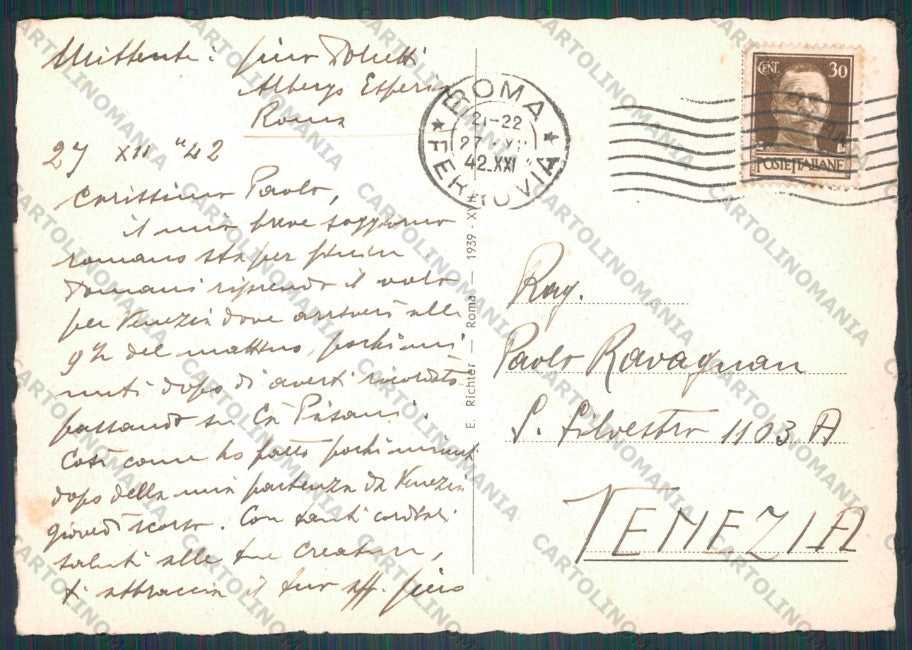 Mittente: Piero
Albergo Esperia
Roma
27 XII "42
Carissimo Paolo,
il mio breve soggiorno
romano sta per finire
domani riprendo il volo
per Venezia dove arriverò alle
9½ del mattino pochi mi-
nuti dopo di averti ricordato
passando su Cà Pisani.
Così come ho fatto pochi minuti
dopo della mia partenza da Venezia
giovedì scorso. Con tanti cordiali
saluti alle tue creature,
ti abbraccia il tuo aff. Piero
ROMA
21-22
27 XII
42.XXI
FERROVIA
CENT. 30
POSTE ITALIANE
E. Richter — Roma — 1939 - XVII
Rag.
Paolo Ravagnan
S. Silvestro 1103 A
VENEZIA
CARTOLINOMANIA